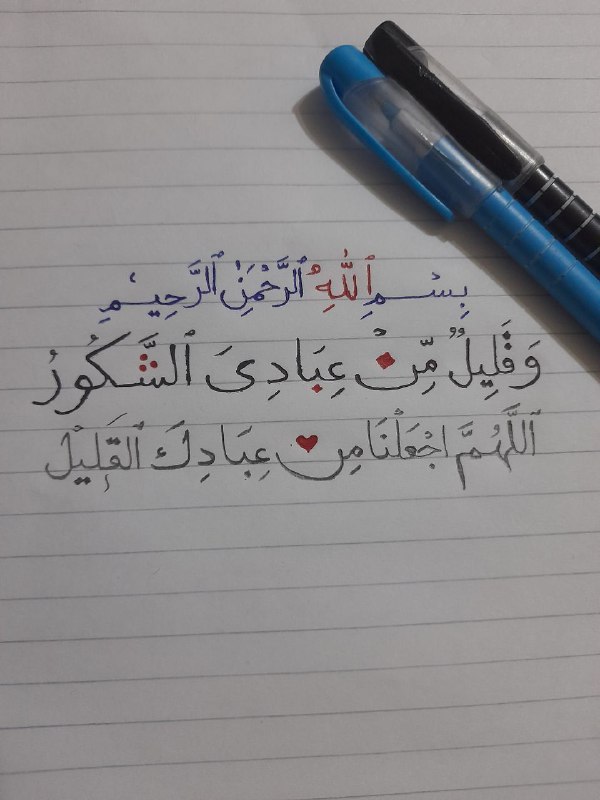 بِسْمِ ٱللَّهِ ٱلرَّحْمَٰنِ ٱلرَّحِيمِ
وَقَلِيلٌ مِّنْ عِبَادِىَ ٱلشَّكُورُ
ٱللَّهُمَّ اجْعَلْنَا مِنْ عِبَادِكَ ٱلقَلِيْل